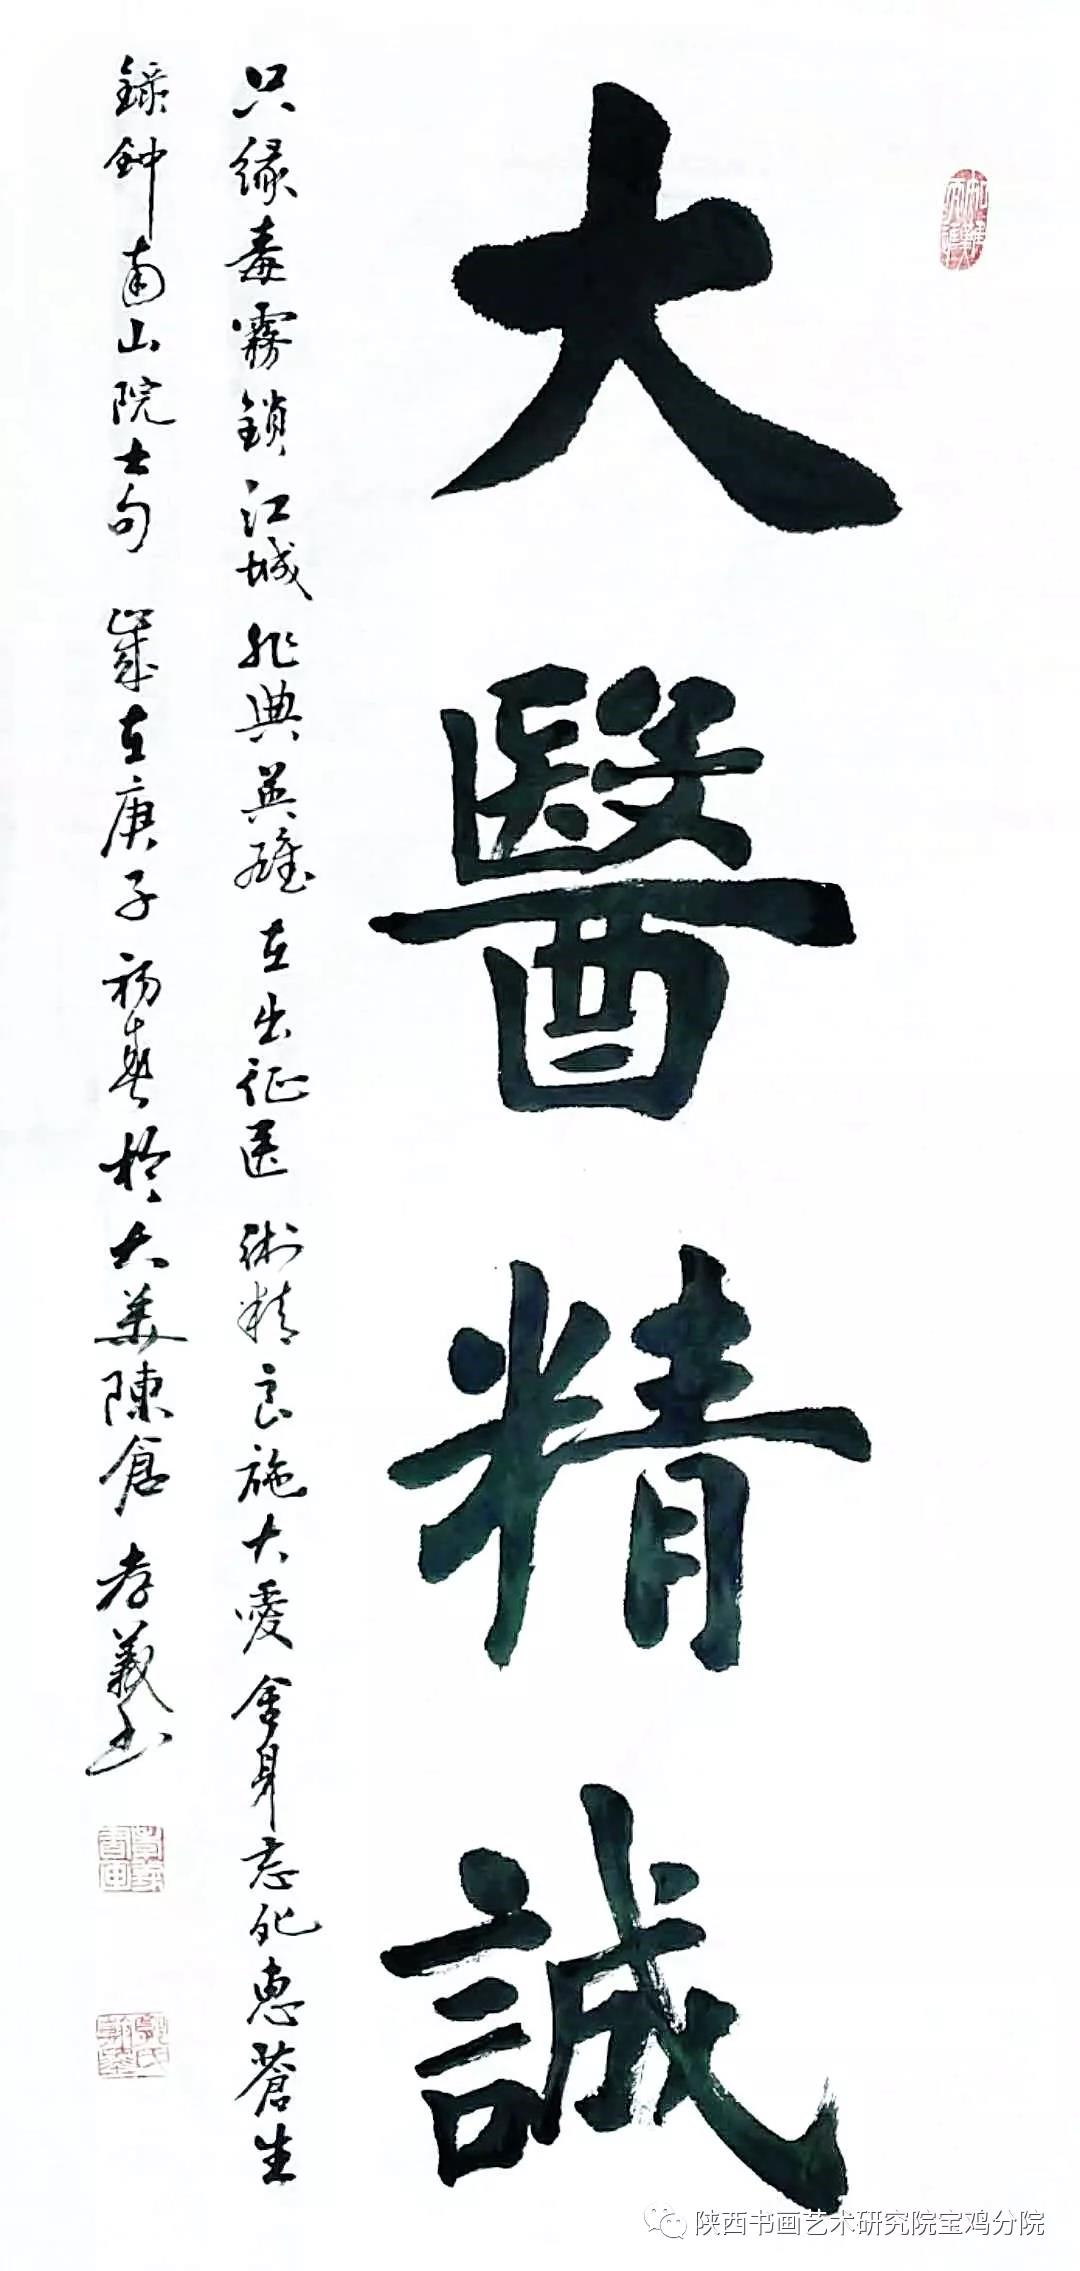 大醫精誠
只緣毒霧鎖江城非典英雄在出征医術精良施大愛舍身忘死惠蒼生
錄鈡南山院士句 歲在庚子初春於大美陳倉 孝義书
陕西书画艺术研究院宝鸡分院